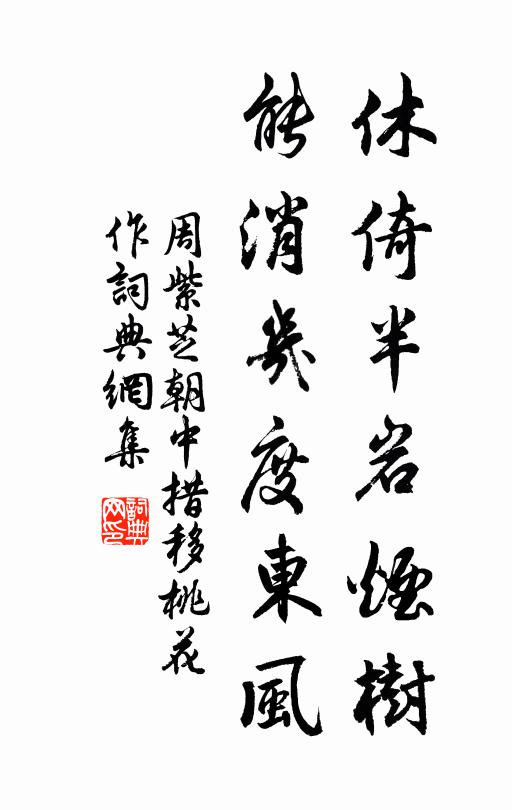 休倚半岩煙樹
能消幾度東風
周紫芝朝中措移桃花
作詞典網集
詞典網印